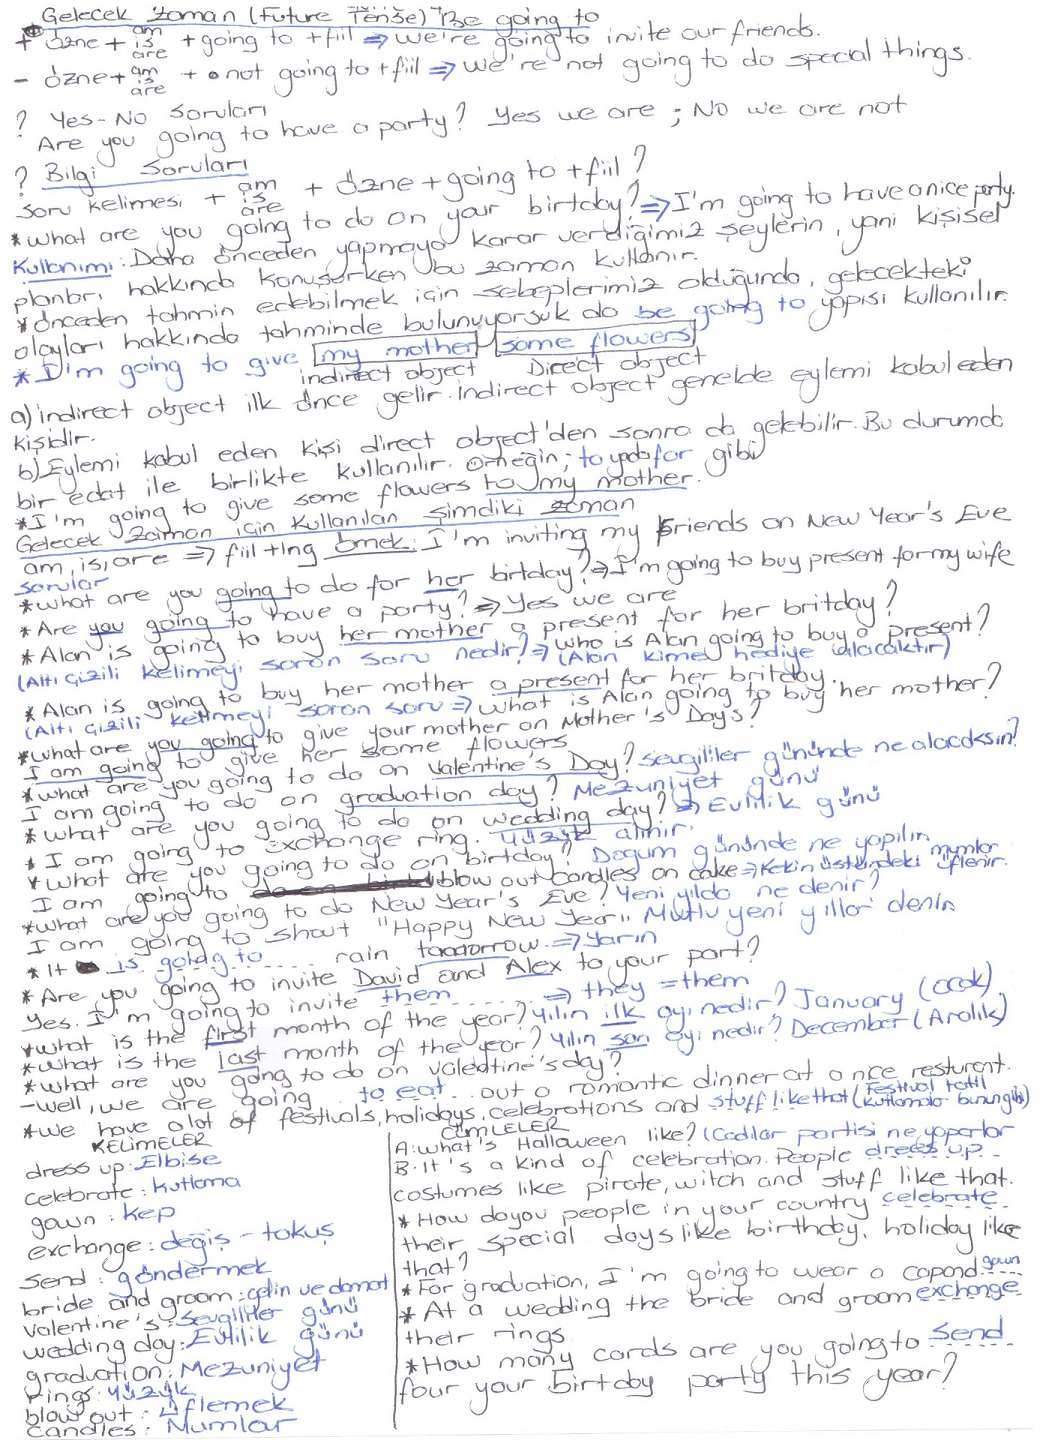 Gelecek Zaman (Future Tense) Be going to
+ özne + am is are + going to + fiil ⇒ we're going to invite our friends.
- özne + am is are + not going to + fiil ⇒ we're not going to do special things.
? Yes-No Soruları
Are you going to have a party? Yes we are ; No we are not
? Bilgi Soruları
Soru kelimesi + am is are + özne + going to + fiil ?
*what are you going to do on your birtday? ⇒ I'm going to have a nice party.
Kullanımı: Daha önceden yapmaya karar verdiğimiz şeylerin, yani kişisel
planları hakkında konuşurken bu zaman kullanır.
*önceden tahmin edebilmek için sebeplerimiz olduğunda, gelecekteki
olayları hakkında tahminde bulunuyorsak da be going to yapısı kullanılır.
*I'm going to give my mother some flowers
indirect object Direct object
a) indirect object ilk önce gelir. indirect object genelde eylemi kabul eden
kişidir.
b) Eylemi kabul eden kişi direct object'den sonra da gelebilir. Bu durumda
bir edat ile birlikte kullanılır. örneğin; to yada for gibi
*I'm going to give some flowers to my mother.
Gelecek Zaman için Kullanılan Şimdiki zaman
am, is, are ⇒ fiil + ing örnek: I'm inviting my friends on New Year's Eve
Sorular
*what are you going to do for her birtday? ⇒ I'm going to buy present for my wife
*Are you going to have a party? ⇒ Yes we are
*Alan is going to buy her mother a present for her britday?
(Altı Çizili kelimeyi soran soru nedir? ⇒ who is Alan going to buy a present?
(Alan kime hediye alacaktır)
*Alan is going to buy her mother a present for her britday.
(Altı Çizili kelimeyi soran soru ⇒ what is Alan going to buy her mother?
*what are you going to give your mother on Mother's Days?
I am going to give her some flowers
*what are you going to do on Valentine's Day? Sevgililer gününde ne alacaksın?
I am going to do on graduation day? Mezuniyet günü
*what are you going to do on wedding day? ⇒ Evlilik günü
*I am going to exchange ring. Yüzük alınır.
*what are you going to do on birtday? Doğum gününde ne yapılır
I am going to blow out candles on cake ⇒ Kekin üstündeki mumlar üflenir.
*what are you going to do New Year's Eve? Yeni yılda ne denir?
I am going to shout "Happy New Year" Mutlu yeni yıllar denir
*It is going to rain tomorrow. ⇒ yarın
*Are you going to invite David and Alex to your part?
Yes. I'm going to invite them ..... ⇒ they = them
*what is the first month of the year? Yılın ilk ayı nedir? January (ocak)
*what is the last month of the year? Yılın son ayı nedir? December (Aralık)
*what are you going to do on valentine's day?
-well, we are going to eat out a romantic dinner at a nice resturant.
*we have a lot of festivals, holidays, celebrations and stuff like that (Festival tatil kutlamala bunun gibi)
KELİMELER
dress up: Elbise
celebrate: kutlama
gown: kep
exchange: değiş - tokuş
send: göndermek
bride and groom: gelin ve damat
Valentine's: Sevgililer günü
wedding day: Evlilik günü
graduation: Mezuniyet
rings: yüzük
blow out: üflemek
candles: Mumlar
CÜMLELER
A: what's Halloween like? (Cadılar partisi ne yaparlar
B: It's a kind of celebration. People drees up
costumes like pirate, witch and stuff like that.
*How do you people in your country celebrate
their special days like birthday, holiday like
that?
*For graduation, I'm going to wear a capand gown
*At a wedding the bride and groom exchange
their rings
*How many cards are you going to send
four your birtday party this year?